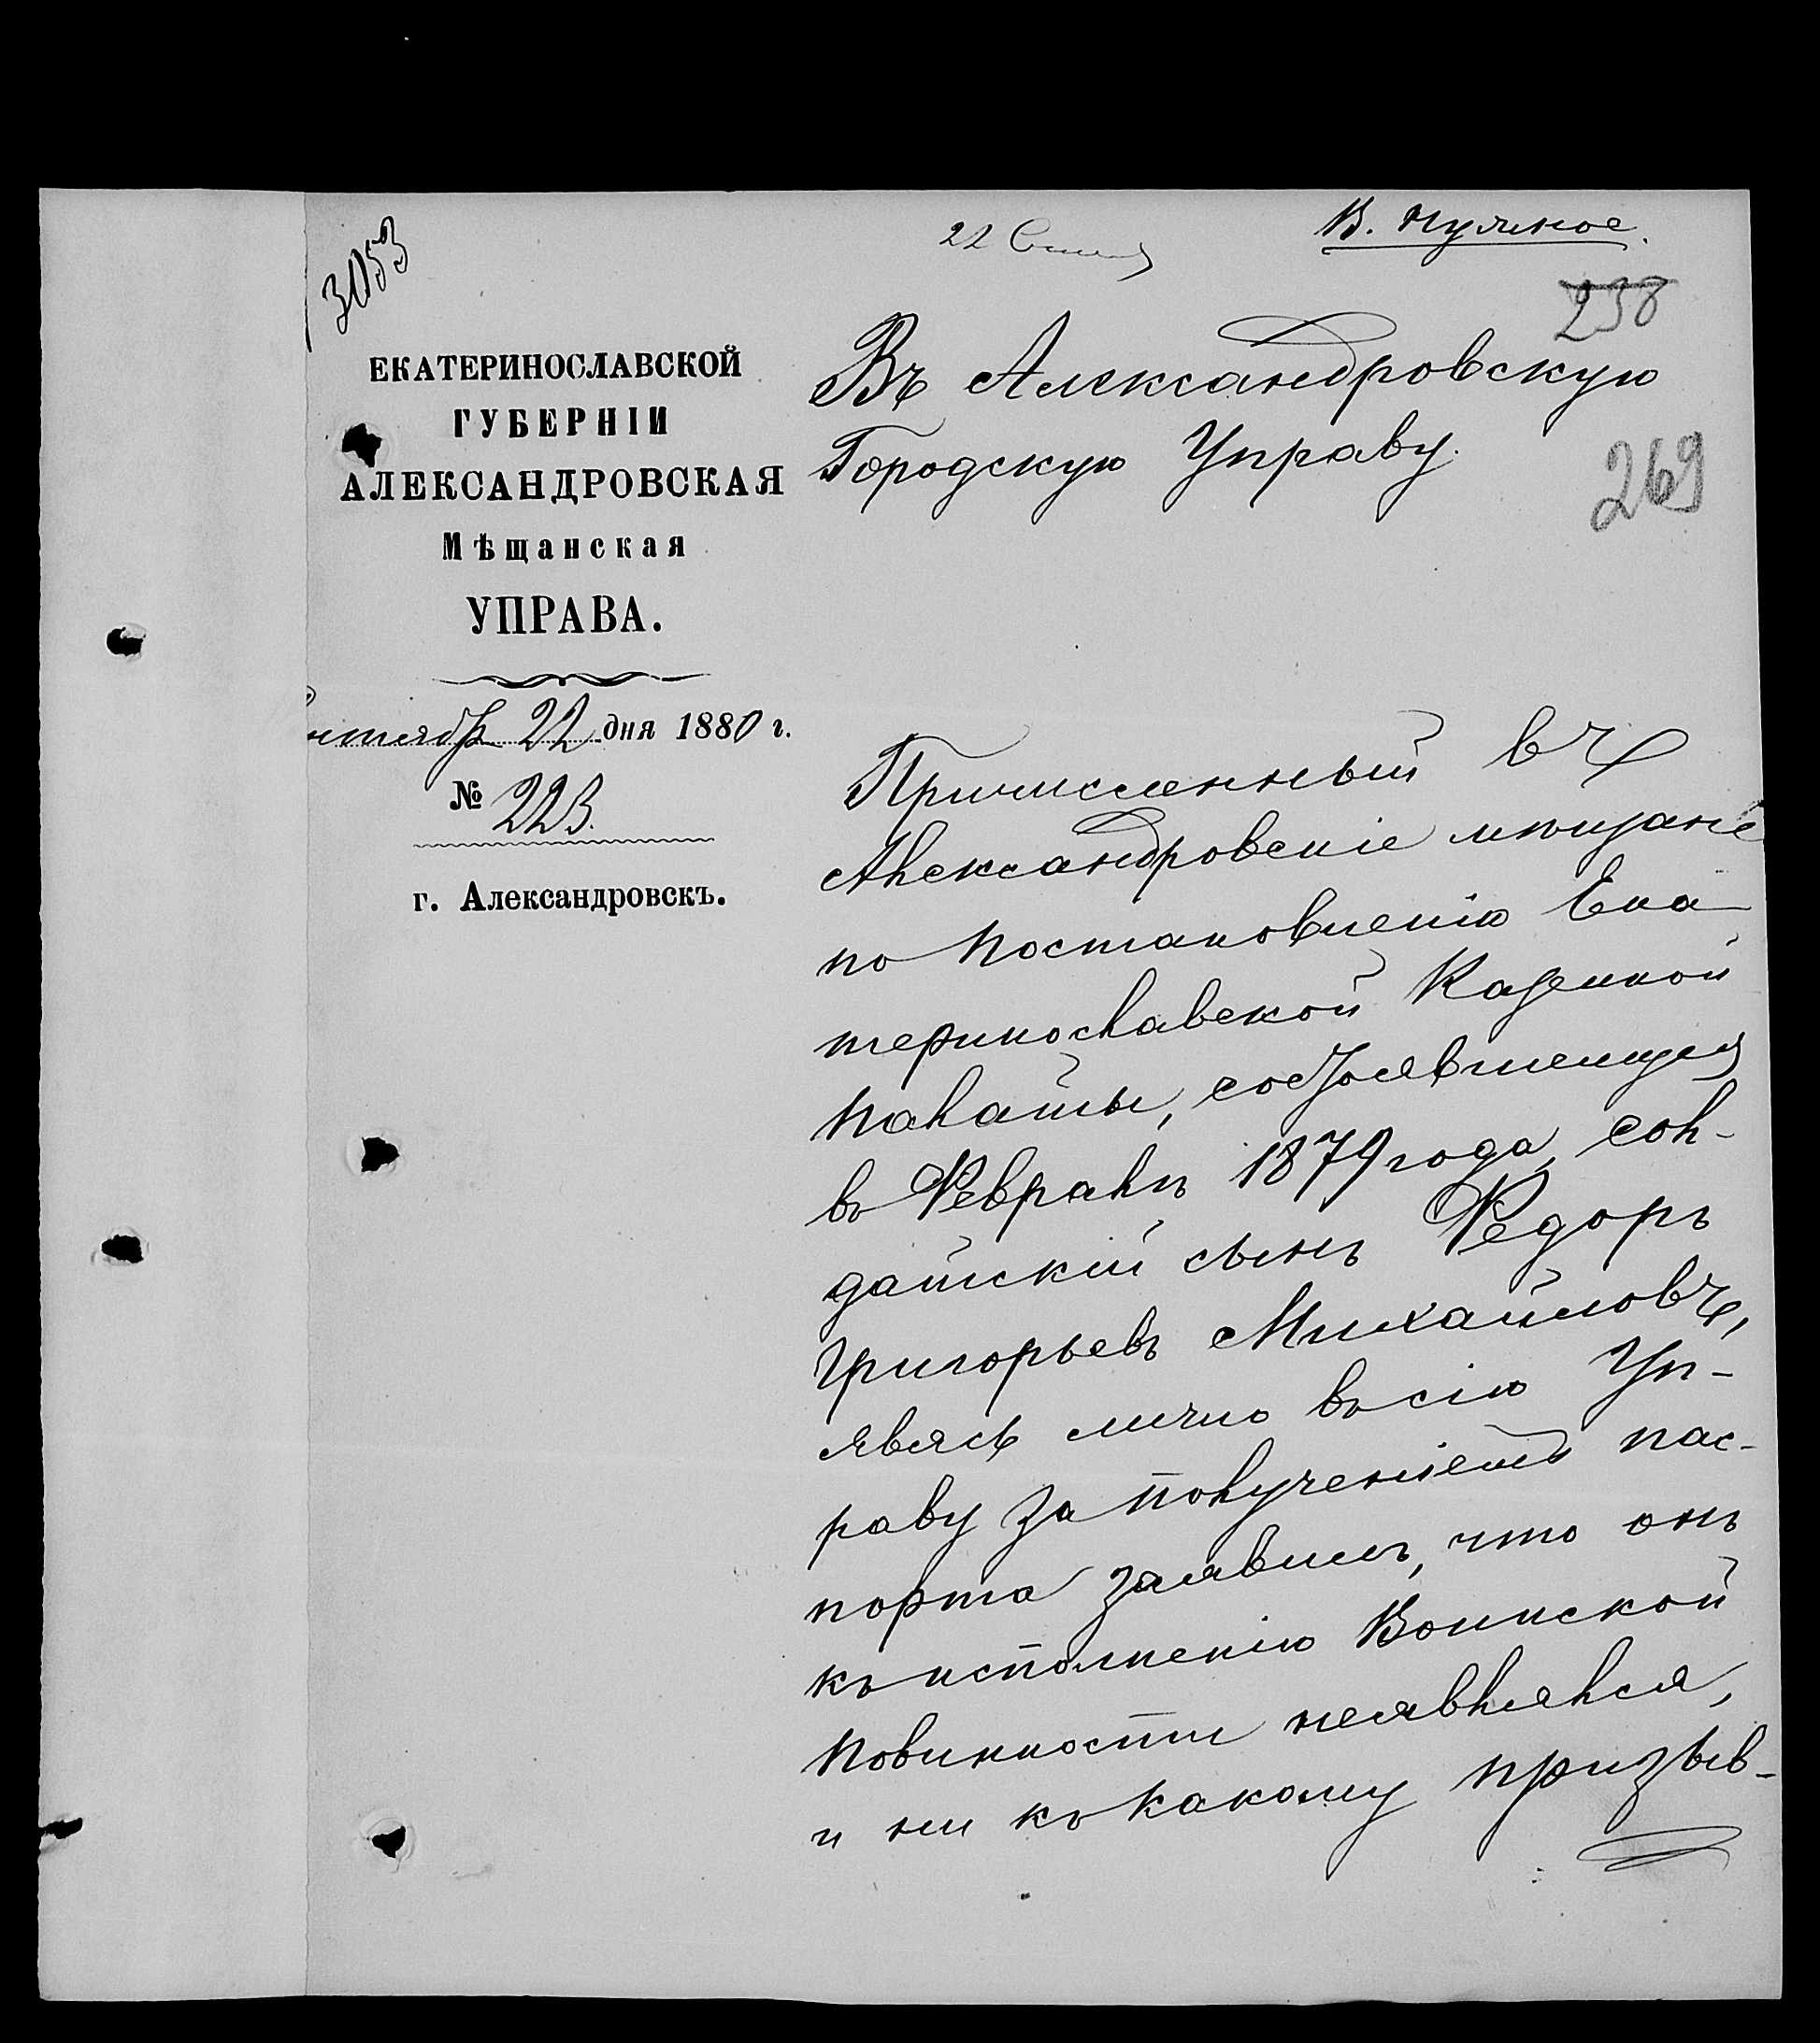 3053
22 Сент
В. Нужное.
238
269
ЕКАТЕРИНОСЛАВСКОЙ
ГУБЕРНІИ
АЛЕКСАНДРОВСКАЯ
Мѣщанская
УПРАВА.
Сентября 22 дня 1880 г.
№ 223.
г. Александровскъ.
Въ Александровскую
Городскую Управу.
Причисленный въ
Александровскіе мѣщане
по постановленію Ека-
теринославской Казенной
палаты, состоявшемуся
въ Февралѣ 1879 года, сол-
датскій сынъ Федоръ
Григорьевъ Михайловъ,
явясь лично въ сію Уп-
раву за полученіемъ пас-
порта заявилъ, что онъ
къ исполненію Воинской
повинности неявлялся,
и ни къ какому призыв-